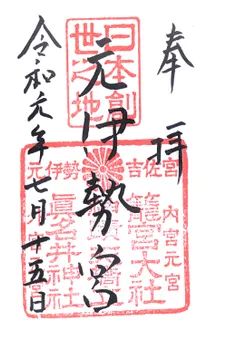 奉拝
日本創
世之地
元伊勢宮
元伊勢
吉佐宮
内宮元宮
籠宮大社
眞名井神社
令和元年七月十五日